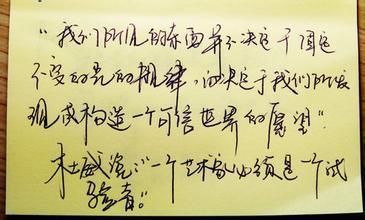 “我们所见的东西并不决定于固定
不变的光的规律，而决定于我们所发
现或构造一个可信世界的愿望”
杜威说：“一个艺术家必须是一个试
验者。”